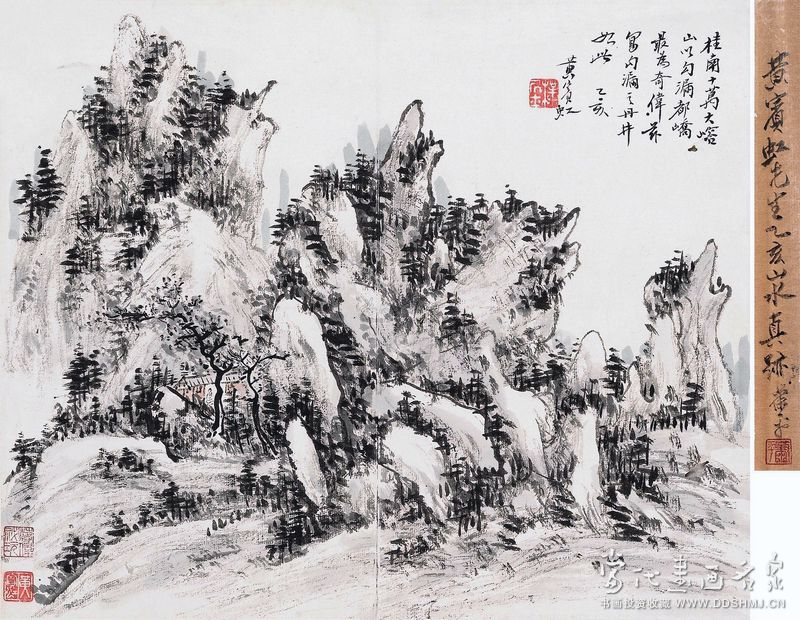 桂甫十萬大嶜
山以勾漏都嶠
最為奇偉茲
寫勾漏之丹井
如此 乙亥
黃賓虹
黃賓虹先生乙亥山水真跡
当代书画名家
书画投资收藏 WWW.DDSHMJ.CN